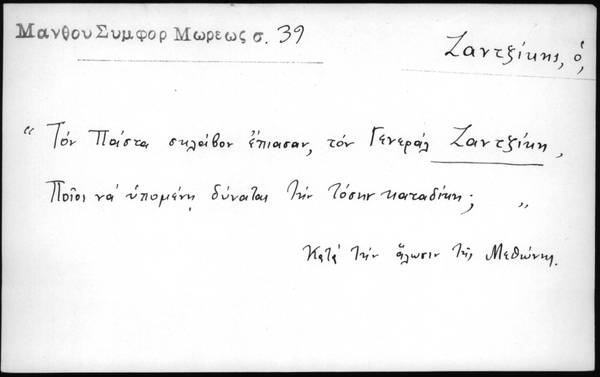 Μανθου Συμφορ Μωρεως σ. 39
Ζαντζίκης, ὁ,
“ Τόν Πάστα σκλάβον ἔπιασαν, τόν Γενεράλ Ζαντζίκη,
Ποῖοι νά ὑπομένῃ δύναται τήν τόσην καταδίκη; ”
Κατά τήν ἅλωσιν τῆς Μεθώνης.